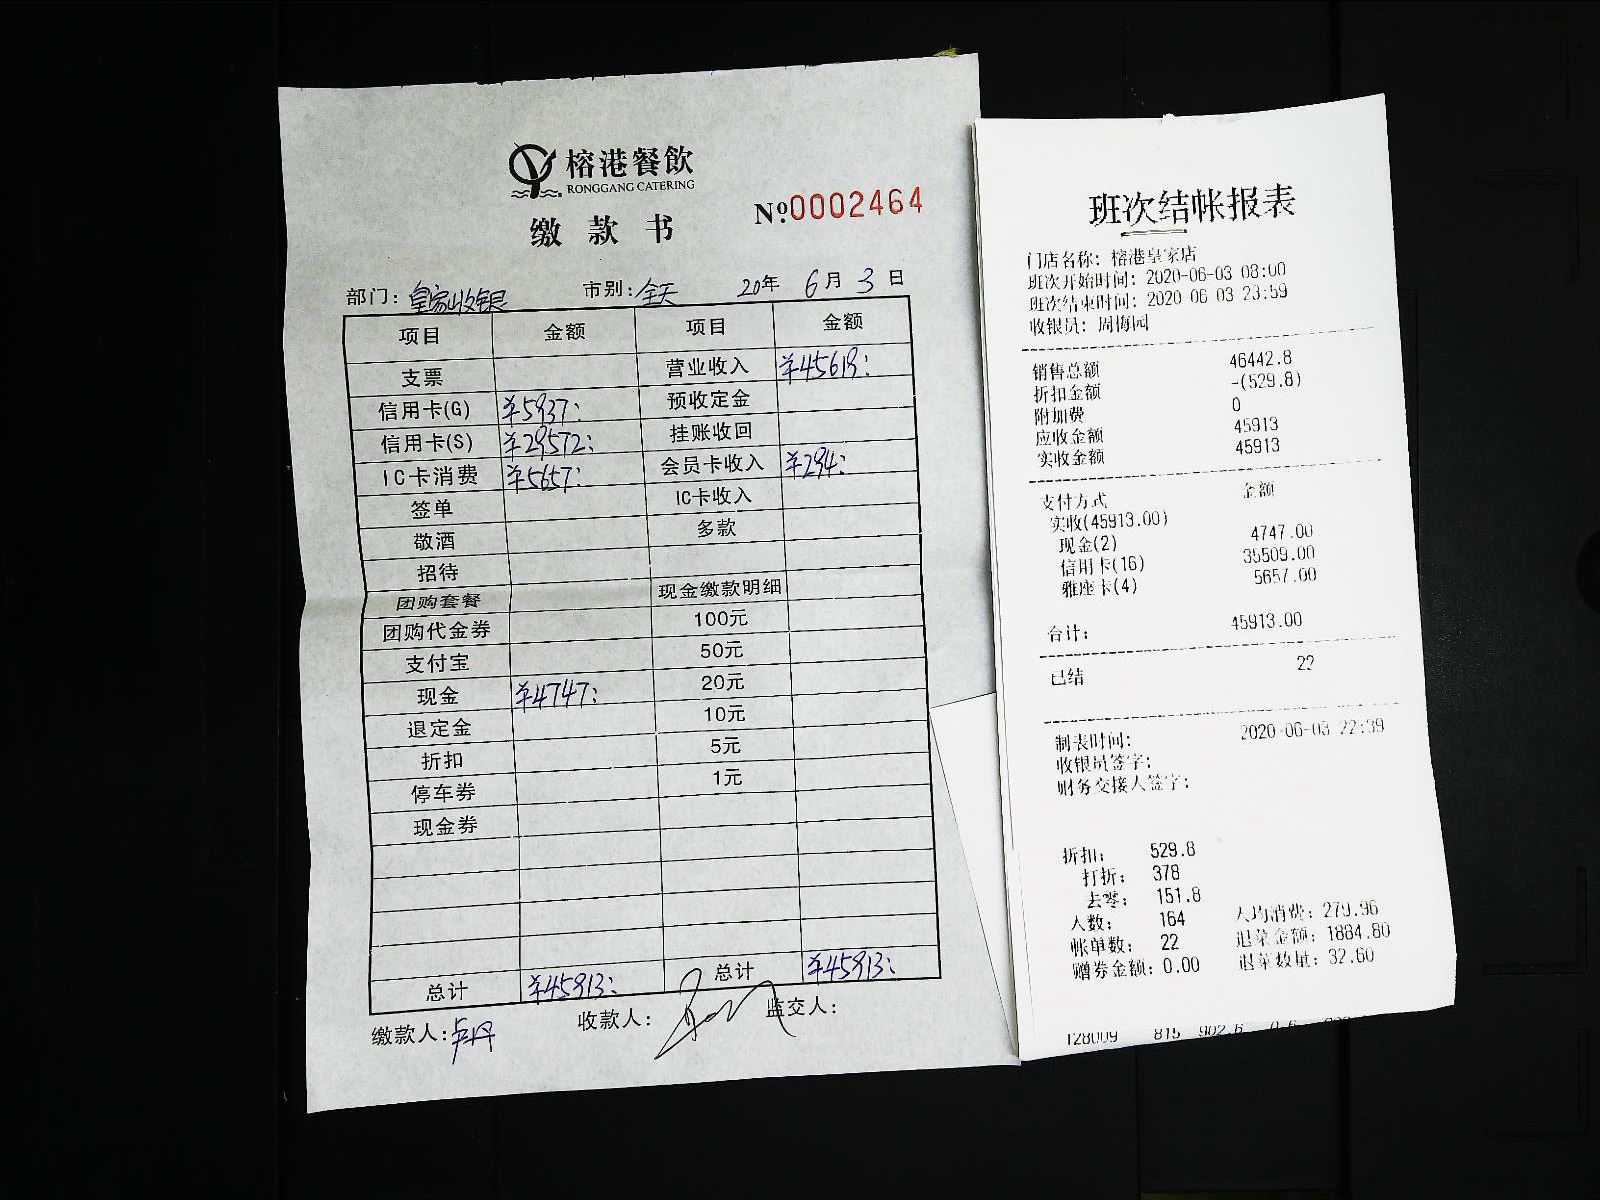 榕港餐飲
RONGGANG CATERING
缴款书
№0002464
部门：皇家收银 市别：全天 20年 6月 3日
项目 金额 项目 金额
支票 营业收入 ¥45619:
信用卡(G) ¥5937: 预收定金
信用卡(S) ¥29572: 挂账收回
IC卡消费 ¥5657: 会员卡收入 ¥294:
签单 IC卡收入
敬酒 多款
招待
团购套餐 现金缴款明细
团购代金券 100元
支付宝 50元
现金 ¥4747: 20元
退定金 10元
折扣 5元
停车券 1元
现金券
总计 ¥45913: 总计 ¥45913:
缴款人：卢丹 收款人： 监交人：
班次结帐报表
门店名称：榕港皇家店
班次开始时间：2020-06-03 08:00
班次结束时间：2020-06-03 23:59
收银员：周梅园
销售总额 46442.8
折扣金额 -(529.8)
附加费 0
应收金额 45913
实收金额 45913
支付方式 金额
实收(45913.00)
现金(2) 4747.00
信用卡(16) 35509.00
雅座卡(4) 5657.00
合计： 45913.00
已结 22
制表时间： 2020-06-03 22:39
收银员签字：
财务交接人签字：
折扣： 529.8
打折： 378
去零： 151.8
人数： 164 人均消费：279.96
帐单数： 22 退菜金额：1884.80
赠券金额：0.00 退菜数量：32.60
128009 815 902.6